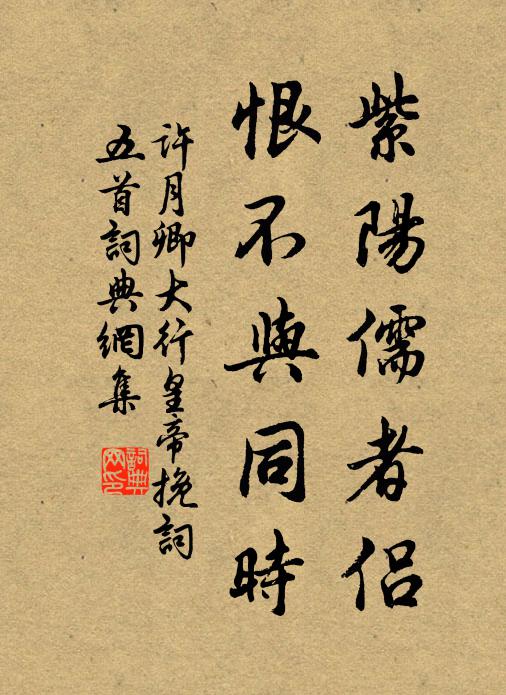 紫陽儒者侣
恨不與同時
許月卿大行皇帝挽詞
五首詞典網集
詞典
网印